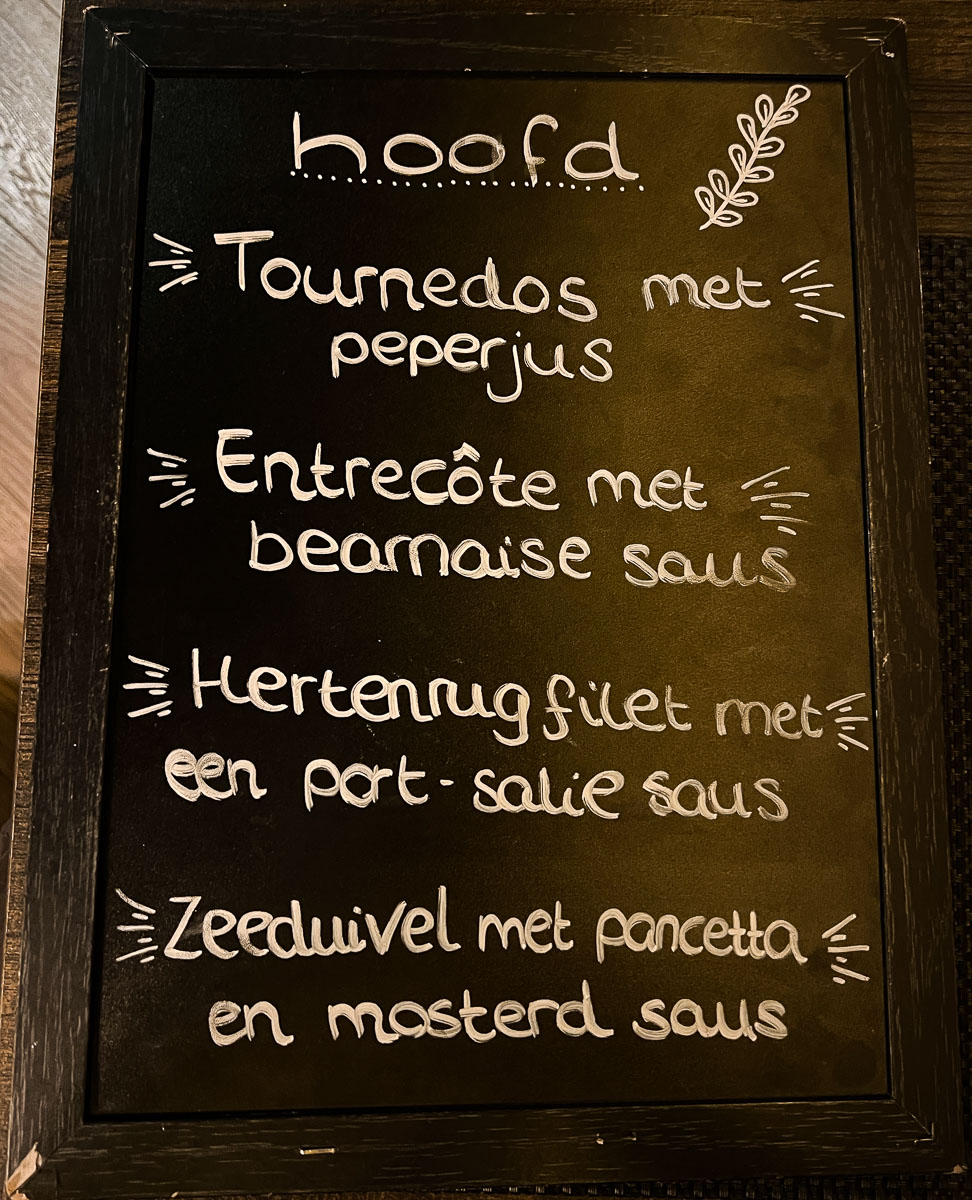 hoofd
Tournedos met
peperjus
Entrecôte met
bearnaise saus
Hertenrug filet met
een port-salie saus
Zeeduivel met pancetta
en mosterd saus